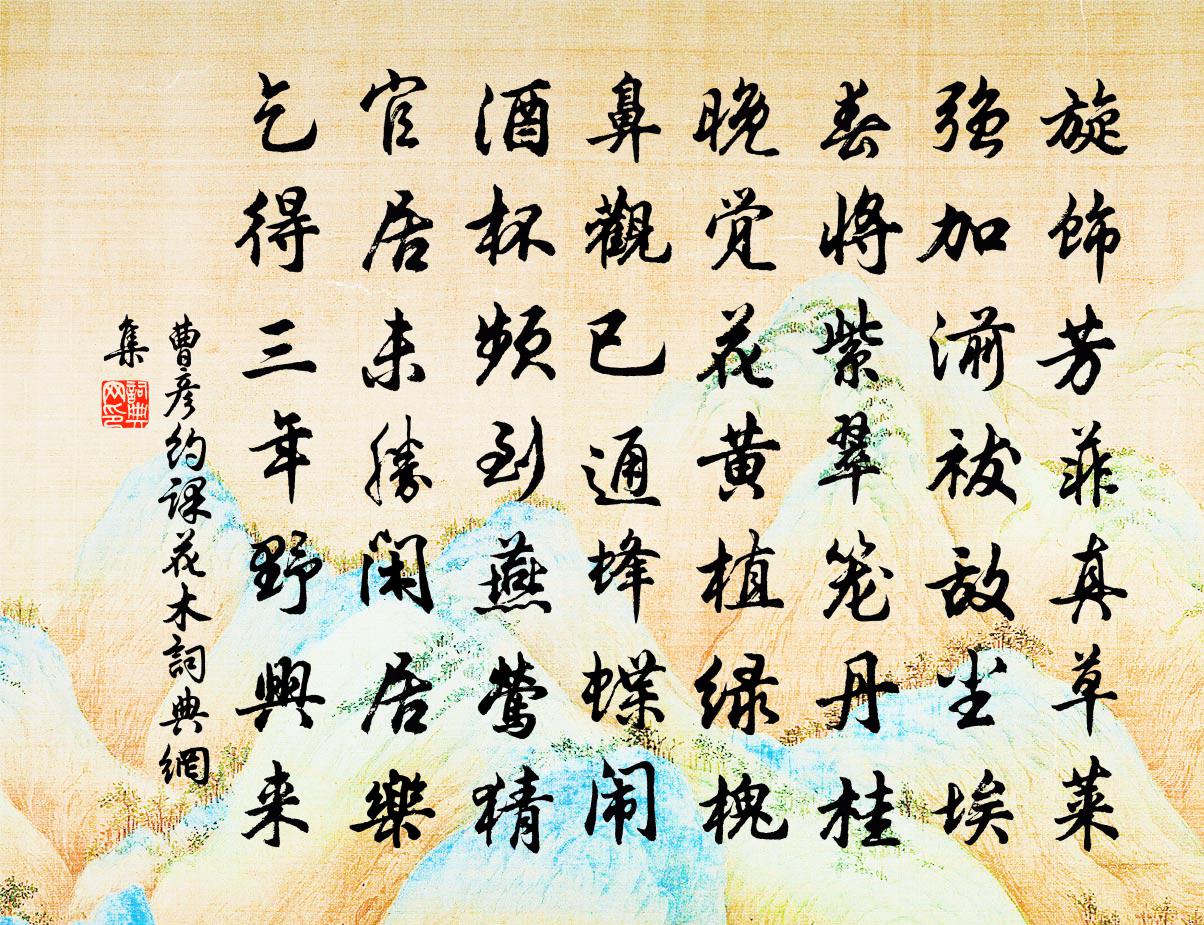 旋饰芳菲真草莱
强加湔祓敌尘埃
春将紫翠笼丹桂
晚觉花黄植绿槐
鼻觀已通蜂蝶闹
酒杯频到燕莺猜
官居未勝闲居樂
乞得三年野興来
曹彦约课花木詞典網
集
詞典网印